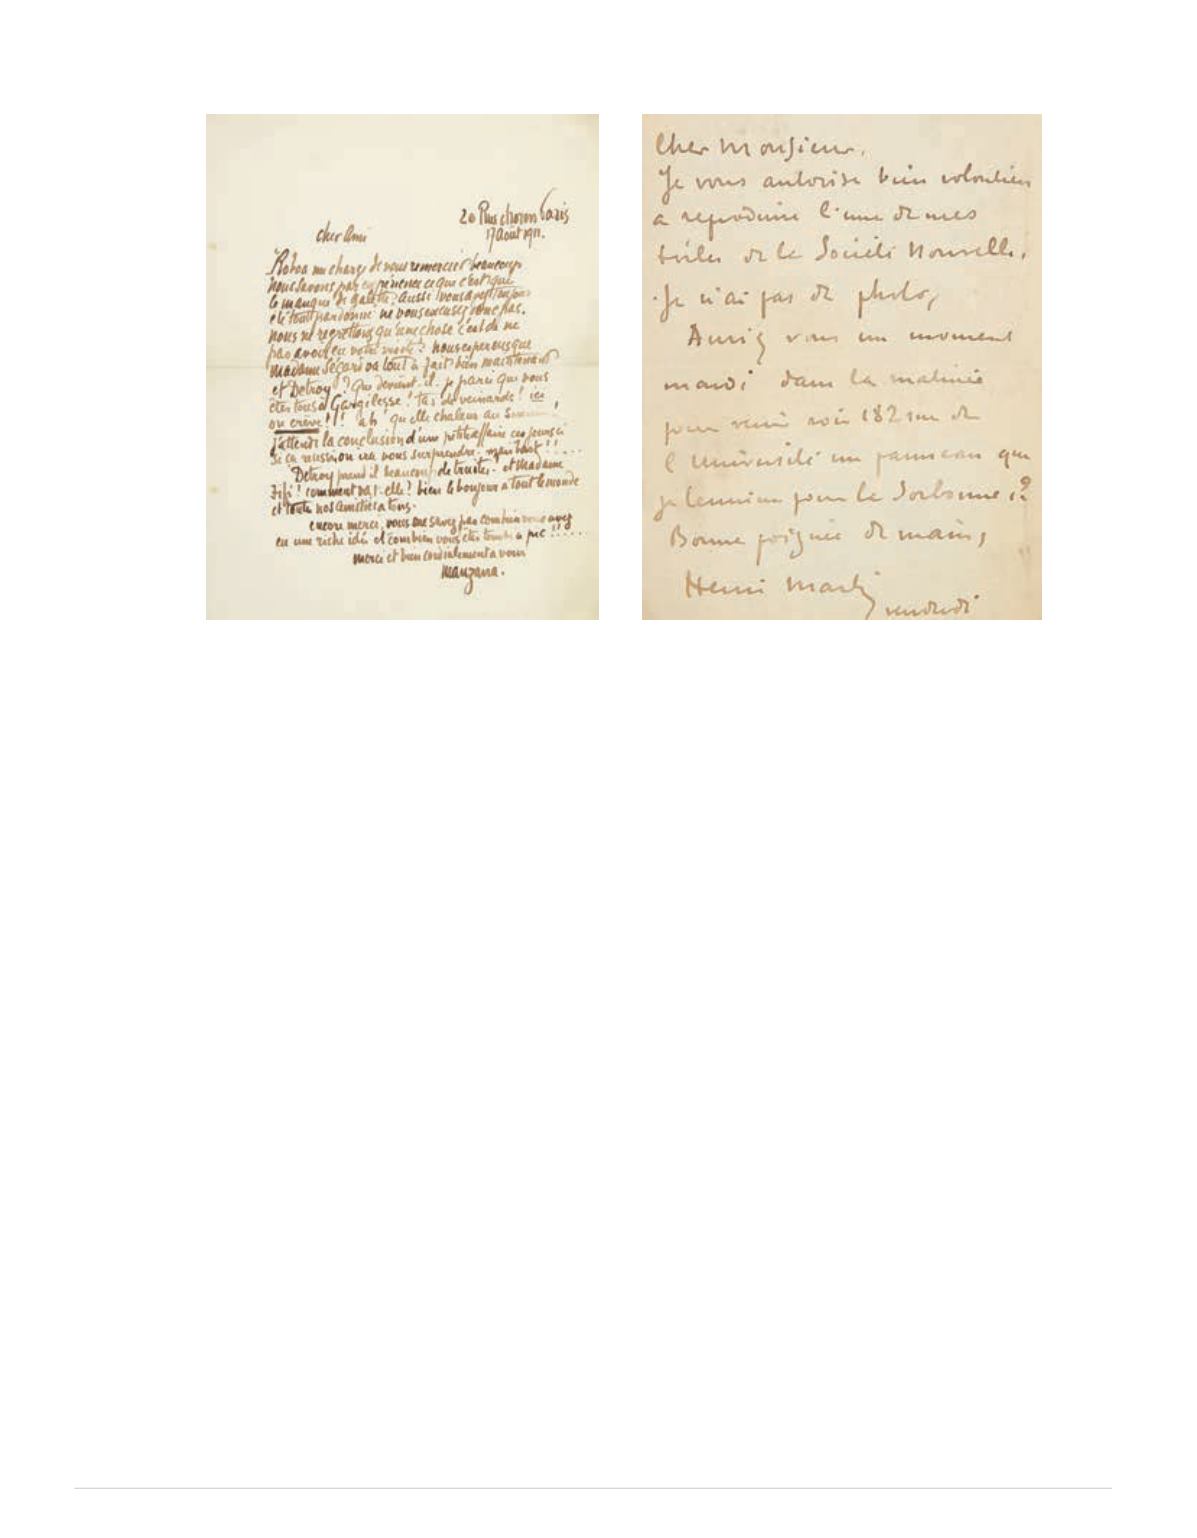 20 Rue Paris
17 Aout 1911.
cher Ami
me charge de vous remercier beaucoup
nous savons par experience ce que c'est que
le manque de galette. Aussi vous
été tout pardonné ne vous excusez donc pas.
nous ne regrettons qu'une chose c'est de ne
pas avoir eu votre visite. nous esperons que
Madame va tout à fait bien maintenant
et Detroy? Que devient-il. je parie que vous
êtes tous à Gargilesse! tas de veinards! ici
on crève!! ah! quelle chaleur au
j'attends la conclusion d'une petite affaire ces jours ci
si ça reussi on ira vous surprendre.
Detroy prend il beaucoup de truites. et Madame
Fifi! comment va t-elle? bien le bonjour a tout le monde
et toute nos amitiés a tous.
encore merci, vous ne savez pas combien vous avez
eu une riche idée et combien vous êtes tombé a pic!!.....
merci et bien cordialement a vous
Manzana.
Cher Monsieur.
Je vous autorise bien volontiers
a reproduire l'une de mes
toiles de la Société Nouvelle.
Je n'ai pas de photo,
Auriez vous un moment
mardi dans la matinée
pour venir voir 182 rue de
l'Université un panneau que
je termine pour la Sorbonne?
Bonne poignée de main,
Henri Martin
vendredi